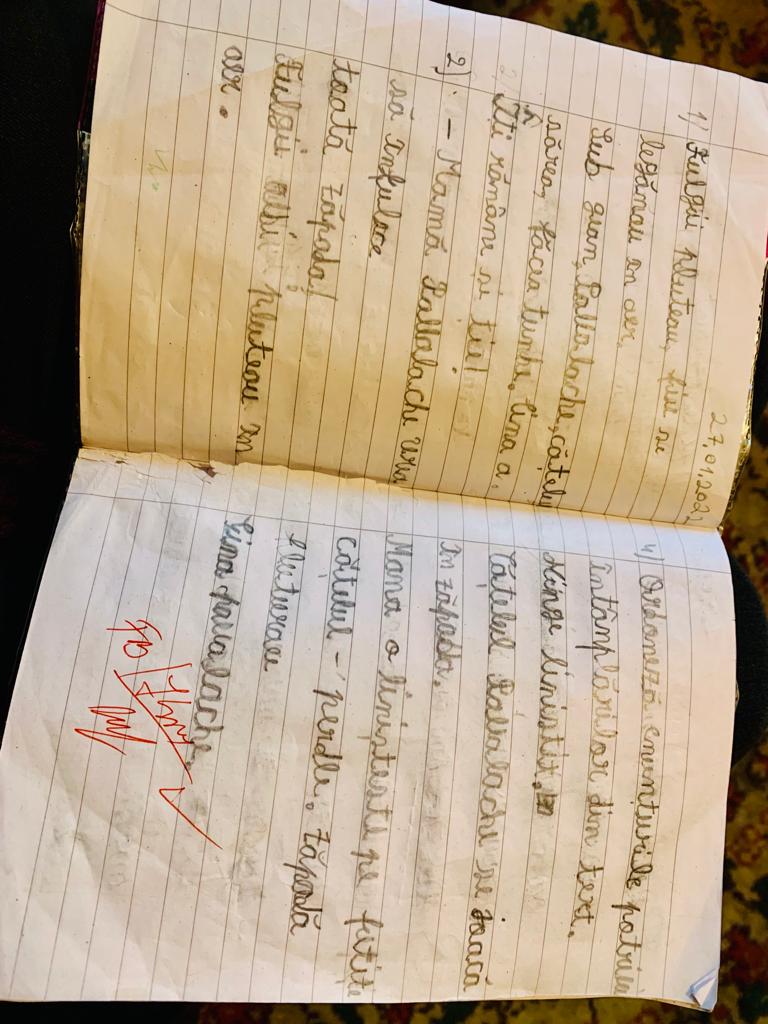 27.01.202
1) Fulgii pluteau, fui se
legănau în aer,
Sub geam, Pavalache, cățelu
sărea, făcea tumbe. Lina a,
Îți rămâne și ție!
2) - Mamă Pavalache vrea
să înfulece
toată zăpada!
Fulgii albi pluteau în
aer.
4) Ordonează enunțurile potrivit
întâmplărilor din text.
Ninge liniștit.
Cățelul Pavalache se joacă
în zăpadă.
Mama o liniștește pe fetiță
Cățelul - perdle. zăpadă
fluturau
Lina pavalache.